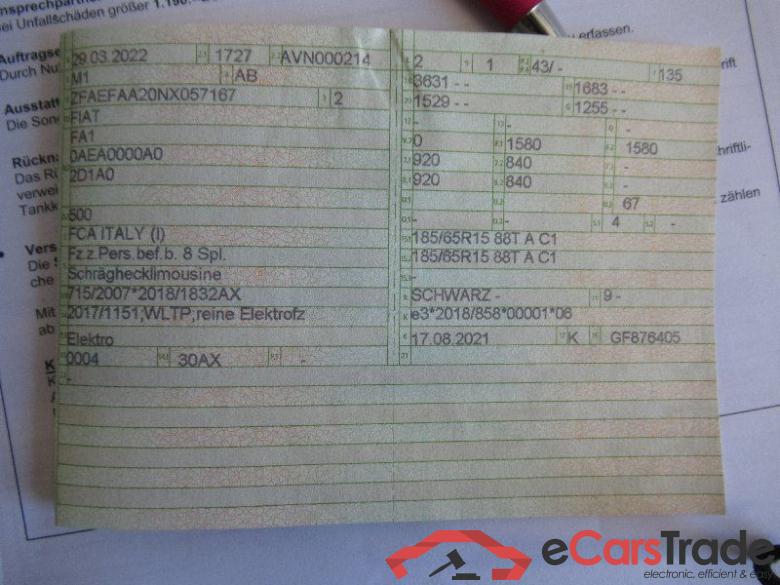 nsprechpartner
ei Unfallschäden größer 1.190.-
Auftragse
Durch Nu
Ausstatt
Die Son
Rückna
Das Rü
verwei
Tankk
Vers
Die
che
Mit
ab
erfassen.
rift
hriftli-
zählen
29.03.2022 1727 AVN000214
M1 AB
ZFAEFAA20NX057167 2
FIAT
FA1
0AEA0000A0
2D1A0
500
FCA ITALY (I)
Fz.z.Pers.bef.b. 8 Spl.
Schräghecklimousine
715/2007*2018/1832AX
2017/1151;WLTP;reine Elektrofz
Elektro
0004 30AX -
-
2 1 43/- 135
3631 - - 1683 - -
1529 - - 1255 - -
- - -
0 1580 1580
920 840 -
920 840 -
67
- - 4 -
185/65R15 88T A C1
185/65R15 88T A C1
-
SCHWARZ - 9 -
e3*2018/858*00001*06
17.08.2021 K GF876405
eCarsTrade
electronic, efficient & ea